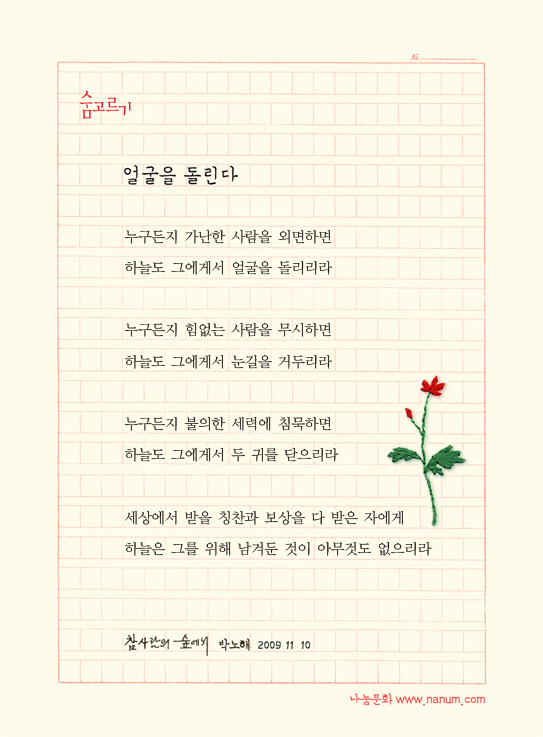 №
숨고르기
얼굴을 돌린다
누구든지 가난한 사람을 외면하면
하늘도 그에게서 얼굴을 돌리리라
누구든지 힘없는 사람을 무시하면
하늘도 그에게서 눈길을 거두리라
누구든지 불의한 세력에 침묵하면
하늘도 그에게서 두 귀를 닫으리라
세상에서 받을 칭찬과 보상을 다 받은 자에게
하늘은 그를 위해 남겨둔 것이 아무것도 없으리라
참사람의 숲에서 박노해 2009 11 10
나눔문화 www.nanum.com